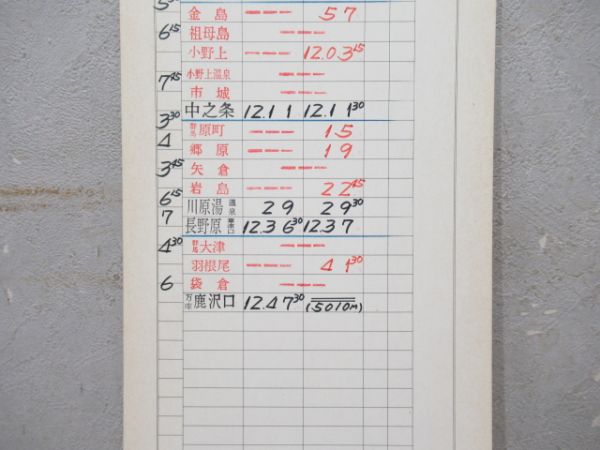 金島 57
6 15
祖母島
小野上 12.03 15
7 45
小野上温泉
市城
3 30
中之条 12.11 12.11 30
群馬原町 15
4
郷原 19
3 45
矢倉
岩島 22 45
6 15
川原湯温泉 29 29 30
7
長野原草津口 12.36 30 12.37
4 30
群馬大津
羽根尾 41 30
6
袋倉
万座鹿沢口 12.47 30 (5010M)